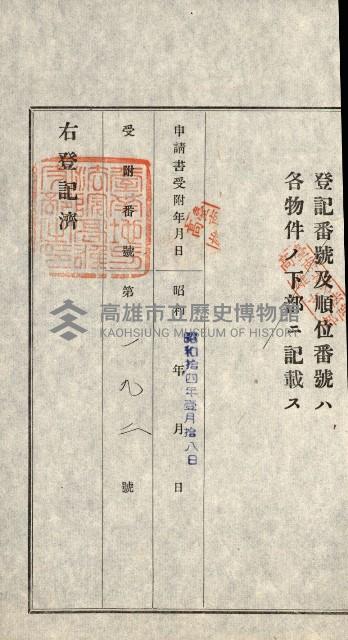 登記番號及順位番號ハ
各物件ノ下部ニ記載ス
申請書受附年月日 昭和 年 月 日
昭和拾四年壹月拾八日
受附番號 第 一九 號
右登記濟
高雄市立歷史博物館
KAOHSIUNG MUSEUM OF HISTORY